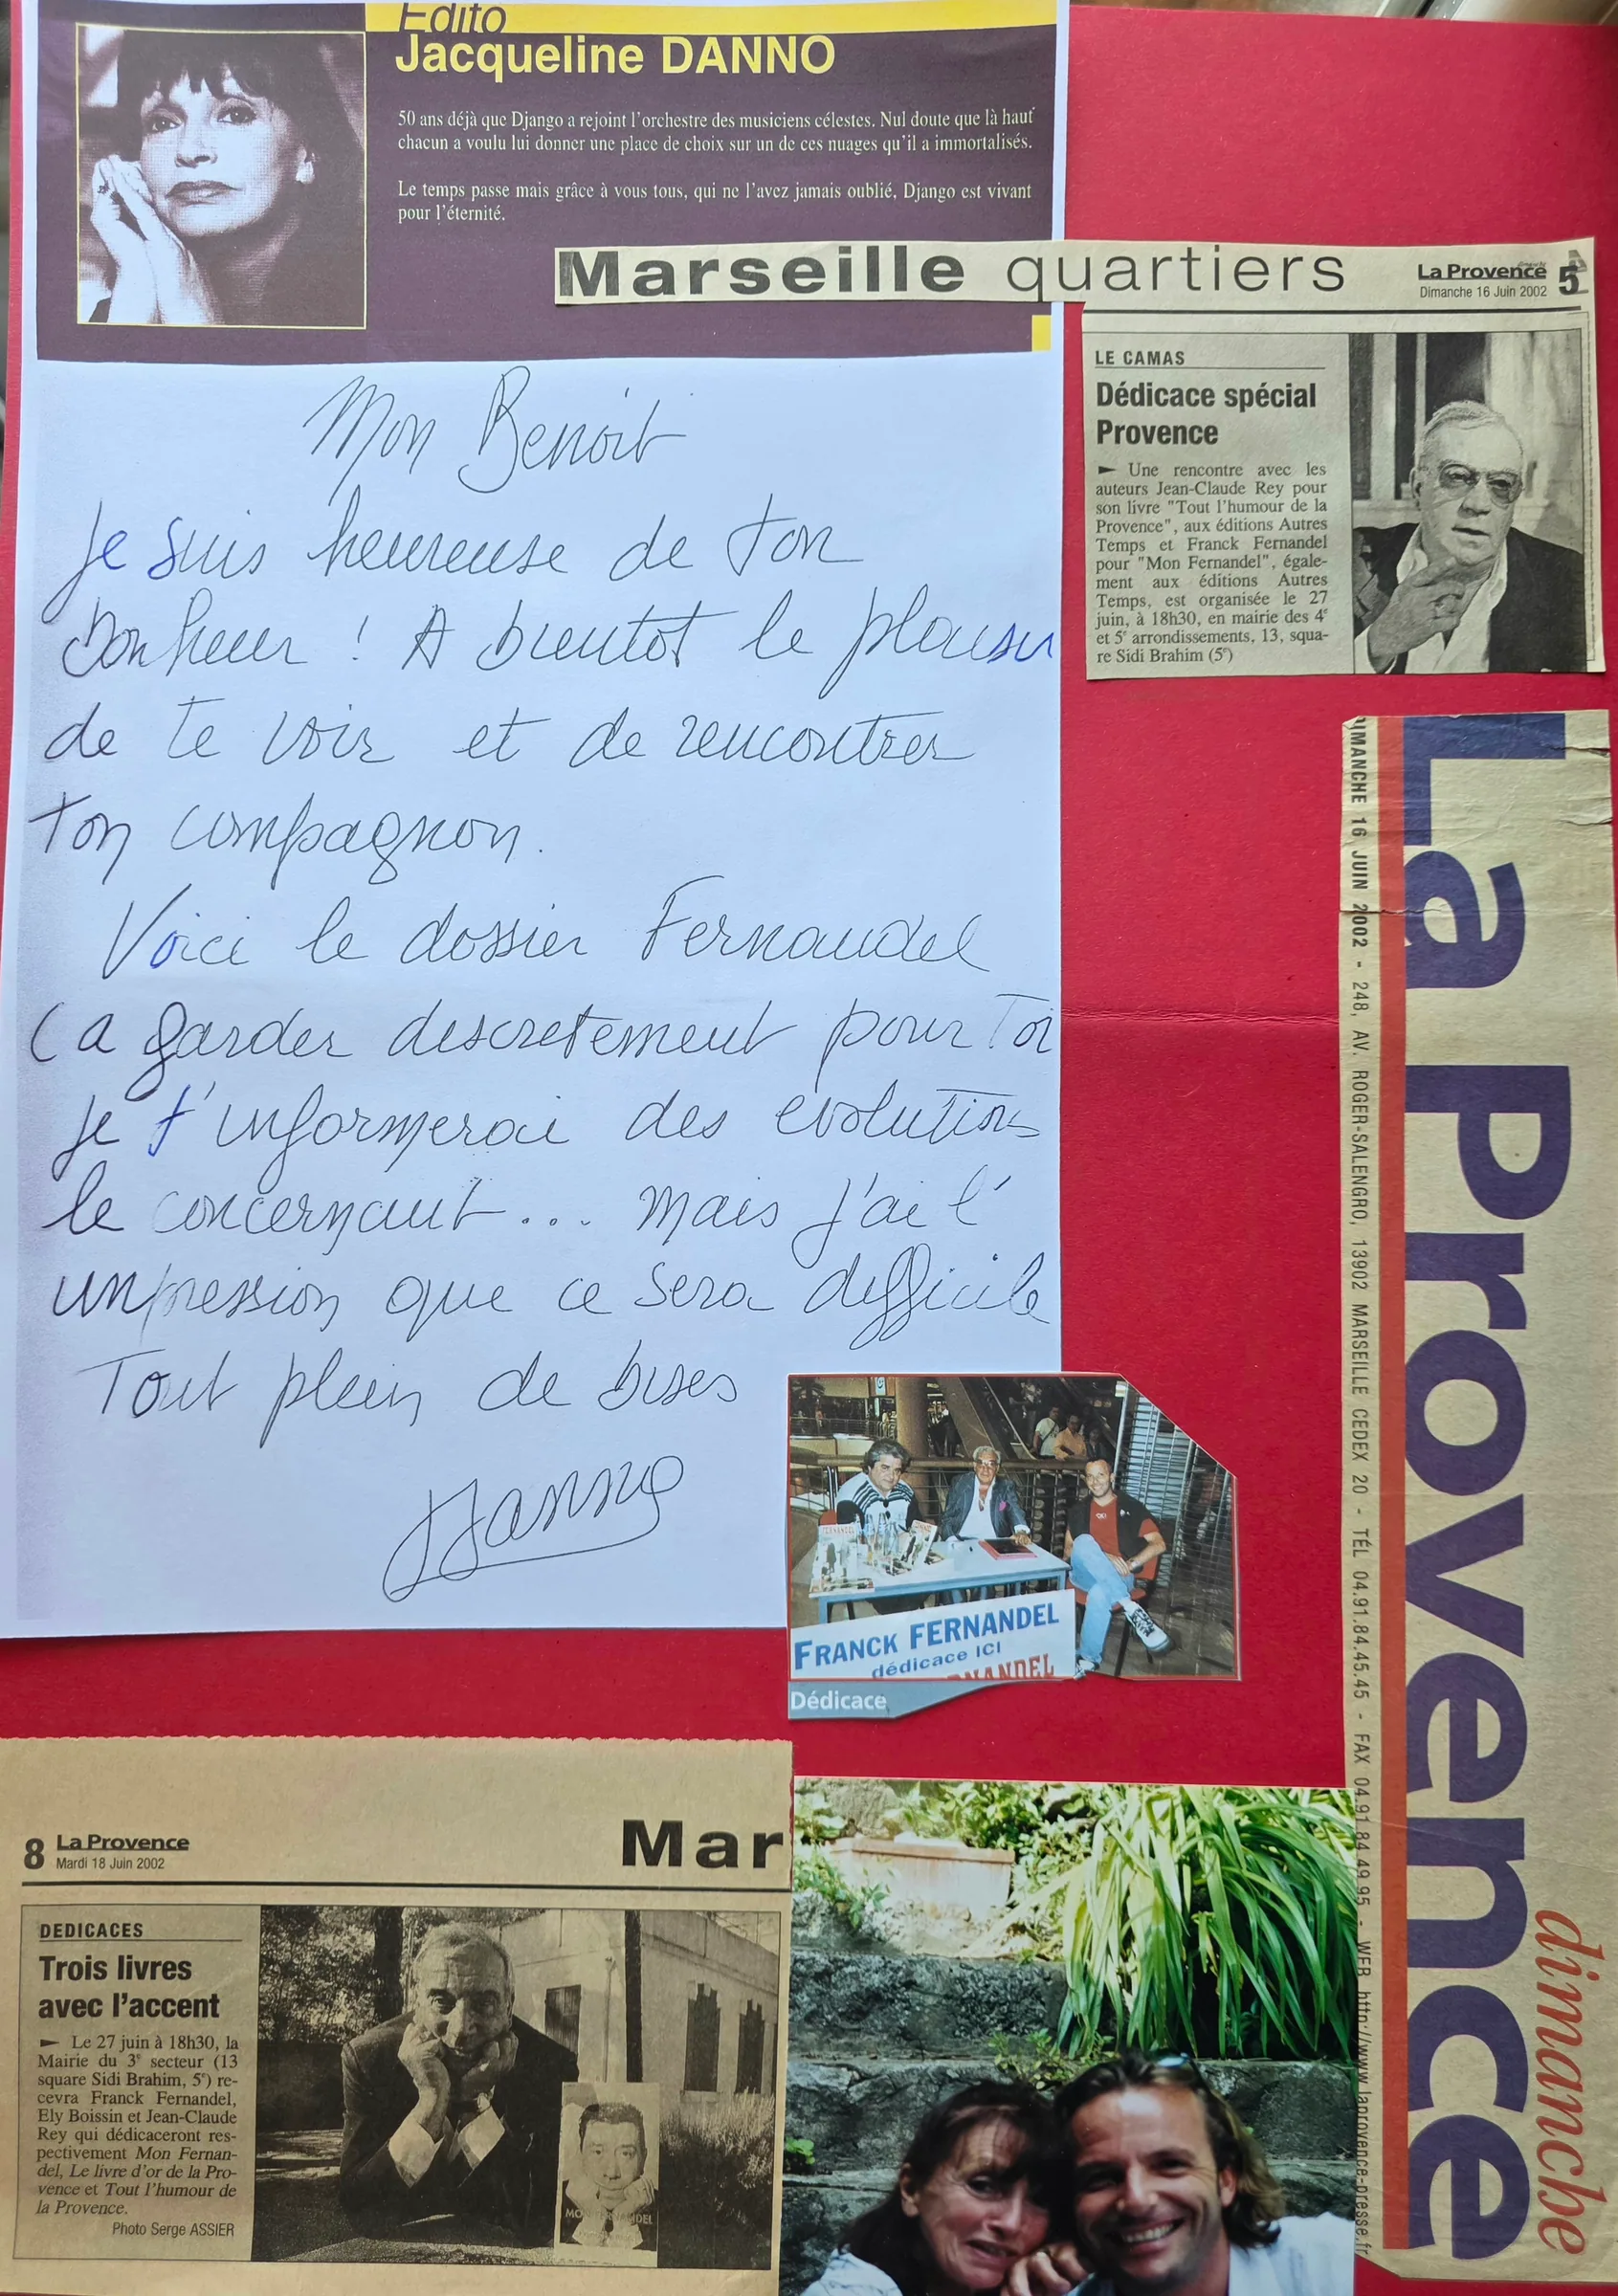 Edito
Jacqueline DANNO
50 ans déjà que Django a rejoint l'orchestre des musiciens célestes. Nul doute que là haut
chacun a voulu lui donner une place de choix sur un de ces nuages qu'il a immortalisés.
Le temps passe mais grâce à vous tous, qui ne l'avez jamais oublié, Django est vivant
pour l'éternité.
Marseille quartiers
La Provence
Dimanche 16 Juin 2002
5
LE CAMAS
Dédicace spécial
Provence
► Une rencontre avec les
auteurs Jean-Claude Rey pour
son livre "Tout l'humour de la
Provence", aux éditions Autres
Temps et Franck Fernandel
pour "Mon Fernandel", égale-
ment aux éditions Autres
Temps, est organisée le 27
juin, à 18h30, en mairie des 4e
et 5e arrondissements, 13, squa-
re Sidi Brahim (5e)
Mon Benoit
Je suis heureuse de ton
bonheur ! A bientot le plaisir
de te voir et de rencontrer
ton compagnon.
Voici le dossier Fernandel
(a garder discretement pour toi
je t'informerai des evolutions
le concernant... mais j'ai l'
impression que ce sera difficile
Tout plein de bises
Danno
La Provence
dimanche
DIMANCHE 16 JUIN 2002 - 248, AV. ROGER-SALENGRO, 13902 MARSEILLE CEDEX 20 - TÉL 04.91.84.45.45 - FAX 04.91.84.49.95 - WEB http://www.laprovence-presse.fr
FRANCK FERNANDEL
dédicace ICI
Dédicace
8 La Provence
Mardi 18 Juin 2002
Mar
DEDICACES
Trois livres
avec l'accent
► Le 27 juin à 18h30, la
Mairie du 3e secteur (13
square Sidi Brahim, 5e) re-
cevra Franck Fernandel,
Ely Boissin et Jean-Claude
Rey qui dédicaceront res-
pectivement Mon Fernan-
del, Le livre d'or de la Pro-
vence et Tout l'humour de
la Provence.
Photo Serge ASSIER